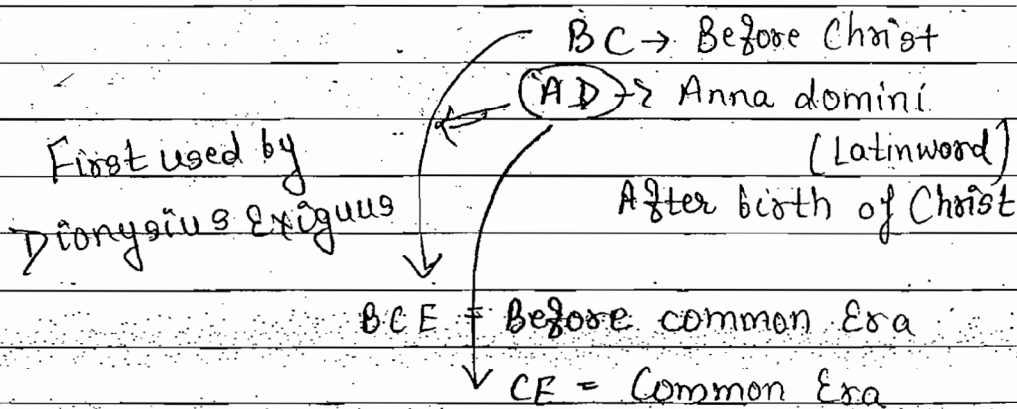 BC → Before Christ
AD → Anna domini
(Latinword)
After birth of Christ
First used by
Dionysius Exiguus
BCE = Before common Era
CE = Common Era